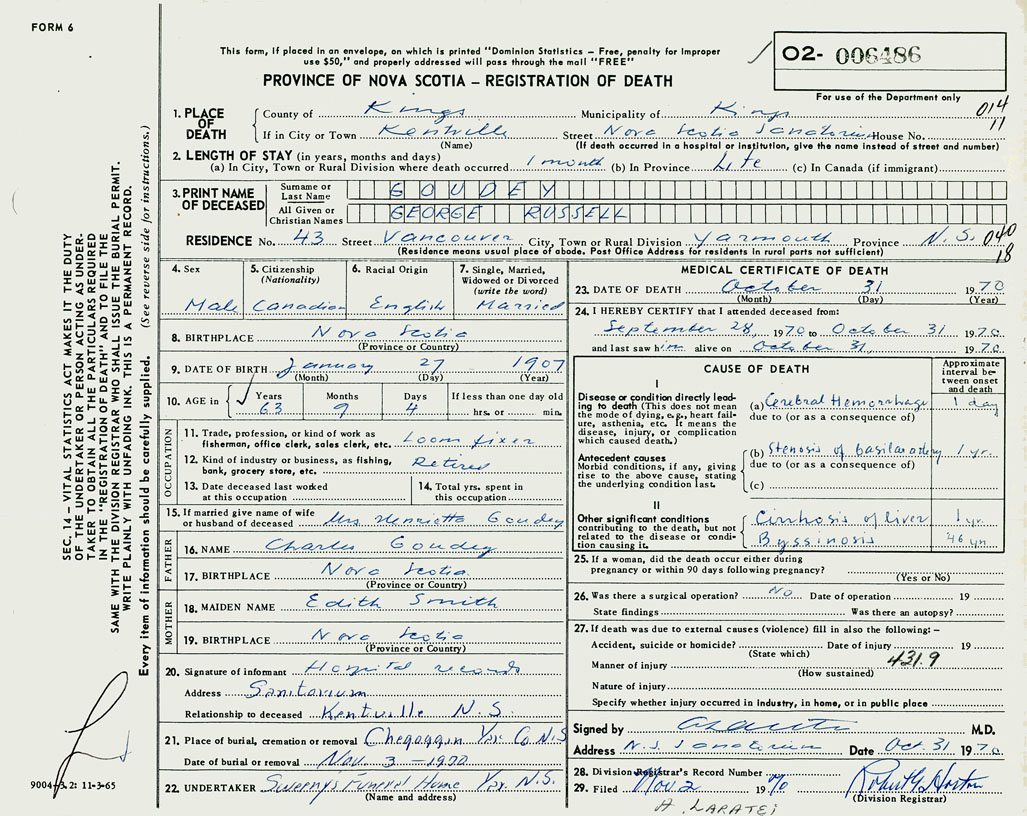 FORM 6
This form, if placed in an envelope, on which is printed "Dominion Statistics — Free, penalty for improper
use $50," and properly addressed will pass through the mail "FREE"
O2- 006486
PROVINCE OF NOVA SCOTIA — REGISTRATION OF DEATH
For use of the Department only
014
11
1. PLACE OF DEATH
County of Kings Municipality of Kings
If in City or Town Kentville Street Nova Scotia Sanatorium House No.
(Name) (If death occurred in a hospital or institution, give the name instead of street and number)
2. LENGTH OF STAY (in years, months and days)
(a) In City, Town or Rural Division where death occurred 1 month (b) In Province Life (c) In Canada (if immigrant)
3. PRINT NAME OF DECEASED
Surname or Last Name GOUDEY
All Given or Christian Names GEORGE RUSSELL
RESIDENCE No. 43 Street Vancouver City, Town or Rural Division Yarmouth Province N.S. 040
18
(Residence means usual place of abode. Post Office Address for residents in rural parts not sufficient)
4. Sex
Male
5. Citizenship (Nationality)
Canadian
6. Racial Origin
English
7. Single, Married, Widowed or Divorced (write the word)
Married
8. BIRTHPLACE Nova Scotia
(Province or Country)
9. DATE OF BIRTH January 27 1907
(Month) (Day) (Year)
10. AGE in Years Months Days If less than one day old
63 9 4 hrs. or min.
OCCUPATION
11. Trade, profession, or kind of work as
fisherman, office clerk, sales clerk, etc. Loom fixer
12. Kind of industry or business, as fishing,
bank, grocery store, etc. Retired
13. Date deceased last worked
at this occupation
14. Total yrs. spent in
this occupation
15. If married give name of wife
or husband of deceased Mrs. Henrietta Goudey
FATHER
16. NAME Charles Goudey
17. BIRTHPLACE Nova Scotia
(Province or Country)
MOTHER
18. MAIDEN NAME Edith Smith
19. BIRTHPLACE Nova Scotia
(Province or Country)
20. Signature of informant Hospital records
Address Sanitorium
Relationship to deceased Kentville N.S.
21. Place of burial, cremation or removal Chegoggin Yar. Co N.S
Date of burial or removal Nov. 3 - 1970
22. UNDERTAKER Sweeny's Funeral Home Yar. N.S.
(Name and address)
MEDICAL CERTIFICATE OF DEATH
23. DATE OF DEATH October 31 1970
(Month) (Day) (Year)
24. I HEREBY CERTIFY that I attended deceased from:
September 28 1970 to October 31 1970
and last saw him alive on October 31, 1970
CAUSE OF DEATH
Approximate interval between onset and death
I
Disease or condition directly leading to death (This does not
mean the mode of dying, e.g., heart failure, asthenia, etc. It means the
disease, injury, or complication
which caused death.)
(a) Cerebral Hemorrhage 1 day
due to (or as a consequence of)
Antecedent causes
Morbid conditions, if any, giving
rise to the above cause, stating
the underlying condition last.
(b) Stenosis of basilar artery 1 yr.
due to (or as a consequence of)
(c)
II
Other significant conditions
contributing to the death, but not
related to the disease or condition causing it.
Cirrhosis of liver 1 yr
Byssinosis 46 yr
25. If a woman, did the death occur either during
pregnancy or within 90 days following pregnancy?
(Yes or No)
26. Was there a surgical operation? No Date of operation 19
State findings Was there an autopsy?
27. If death was due to external causes (violence) fill in also the following: —
Accident, suicide or homicide? Date of injury 19
(State which)
431.9
Manner of injury
(How sustained)
Nature of injury
Specify whether injury occurred in industry, in home, or in public place
Signed by M.D.
Address N.S. Sanatorium Date Oct. 31 1970
28. Division Registrar's Record Number
29. Filed Nov. 2 1970
(Division Registrar)
SEC. 14 — VITAL STATISTICS ACT MAKES IT THE DUTY
OF THE UNDERTAKER OR PERSON ACTING AS UNDER-
TAKER TO OBTAIN ALL THE PARTICULARS REQUIRED
IN THE "REGISTRATION OF DEATH" AND TO FILE THE
SAME WITH THE DIVISION REGISTRAR WHO SHALL ISSUE THE BURIAL PERMIT.
WRITE PLAINLY WITH UNFADING INK. THIS IS A PERMANENT RECORD.
Every item of information should be carefully supplied. (See reverse side for instructions.)
9004-3.2: 11-3-65